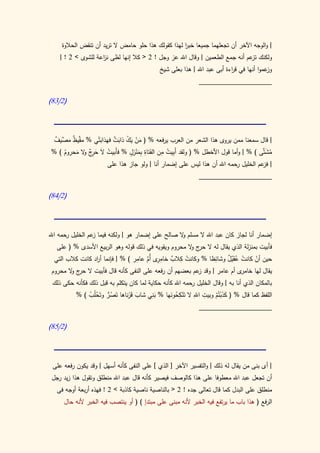 | والوجه الآخر أن تجعلهما جميعا خبرا لهذا كقولك هذا حلو حامض لا تريد أن تنقض الحلاوة
ولكنك تزعم أنه جمع الطعمين | وقال الله عز وجل ! 2 < كلا إنها لظى نزاعة للشوى > 2 ! |
وزعموا أنها في قراءة أبى عبد الله | هذا بعلى شيخ
(83/2)
| قال سمعنا ممن يروى هذا الشعر من العرب يرفعه % ( مَنْ يَكُ ذابَتٍّ فهذابَتِّي % مقَيِّظٌ مصَيِّفٌ
مُشَتِّى ) % | وأما قول الأخطل % ( ولقد أَبيتُ مِن الفتاةِ بِمنْزلٍ % فأَبيتُ لا حَرِجٌ ولا محرومُ ) %
| فزعم الخليل رحمه الله أن هذا ليس على إضمار أنا | ولو جاز هذا على
(84/2)
إضمار أنا لجاز كان عبد الله لا مسلم ولا صالح على إضمار هو | ولكنه فيما زعم الخليل رحمه الله
فأبيت بمنزلة الذي يقال له لا حرج ولا محروم ويقويه في ذلك قوله وهو الربيع الأسدى % ( على
حين أنْ كانتْ عُقَيْلٌ وشائِظا % وكانتْ كلابٌ خامِرى أُمَّ عامر ) % | فإنما أراد كانت كلاب التي
يقال لها خامرى أم عامر | وقد زعم بعضهم أن رفعه على النفى كأنه قال فأبيت لا حرج ولا محروم
بالمكان الذي أنا به | وقال الخليل رحمه الله كأنه حكاية لما كان يتكلم به قبل ذلك فكأنه حكى ذلك
اللفظ كما قال % ( كذَبْتُمْ وبيتِ الله لا تَنْكِحُونها % بَنِي شابَ قَرْناها تَصُرُّ وتَحْلُبُ ) %
(85/2)
| أى بنى من يقال له ذلك | والتفسير الآخر [ الذي ] على النفى كأنه أسهل | وقد يكون رفعه على
أن تجعل عبد الله معطوفا على هذا كالوصف فيصير كأنه قال عبد الله منطلق وتقول هذا زيد رجل
منطلق على البدل كما قال تعالى جده ! 2 < بالناصية ناصية كاذبة > 2 ! فهذه أربعة أوجه فى
الرفع ( هذا باب ما يرتفع فيه الخبر لأنه مبنى على مبتدإ ) ( أو ينتصب فيه الخبر لأنه حال